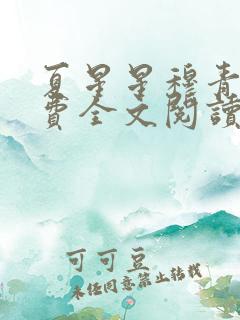 夏星星穆青
费全文阅读
可可豆
未经同意禁止转载